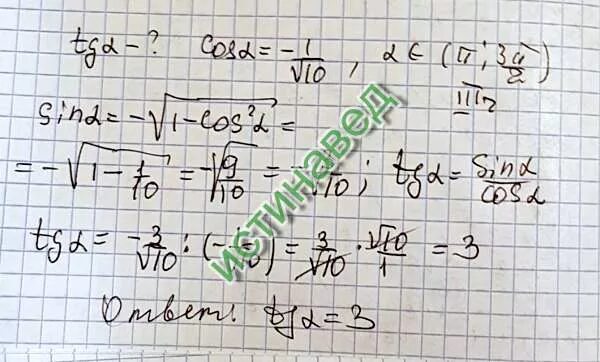 tgα - ? cosα = -1/√10, α ∈ (π; 3π/2)
III ч
sinα = -√(1-cos²α) =
= -√(1 - 1/10) = -√(9/10) = /√10; tgα = sinα/cosα
tgα = -3/√10 : (- ) = 3/√10 · √10/1 = 3
Ответ: tgα = 3
ИСТИНАВЕД